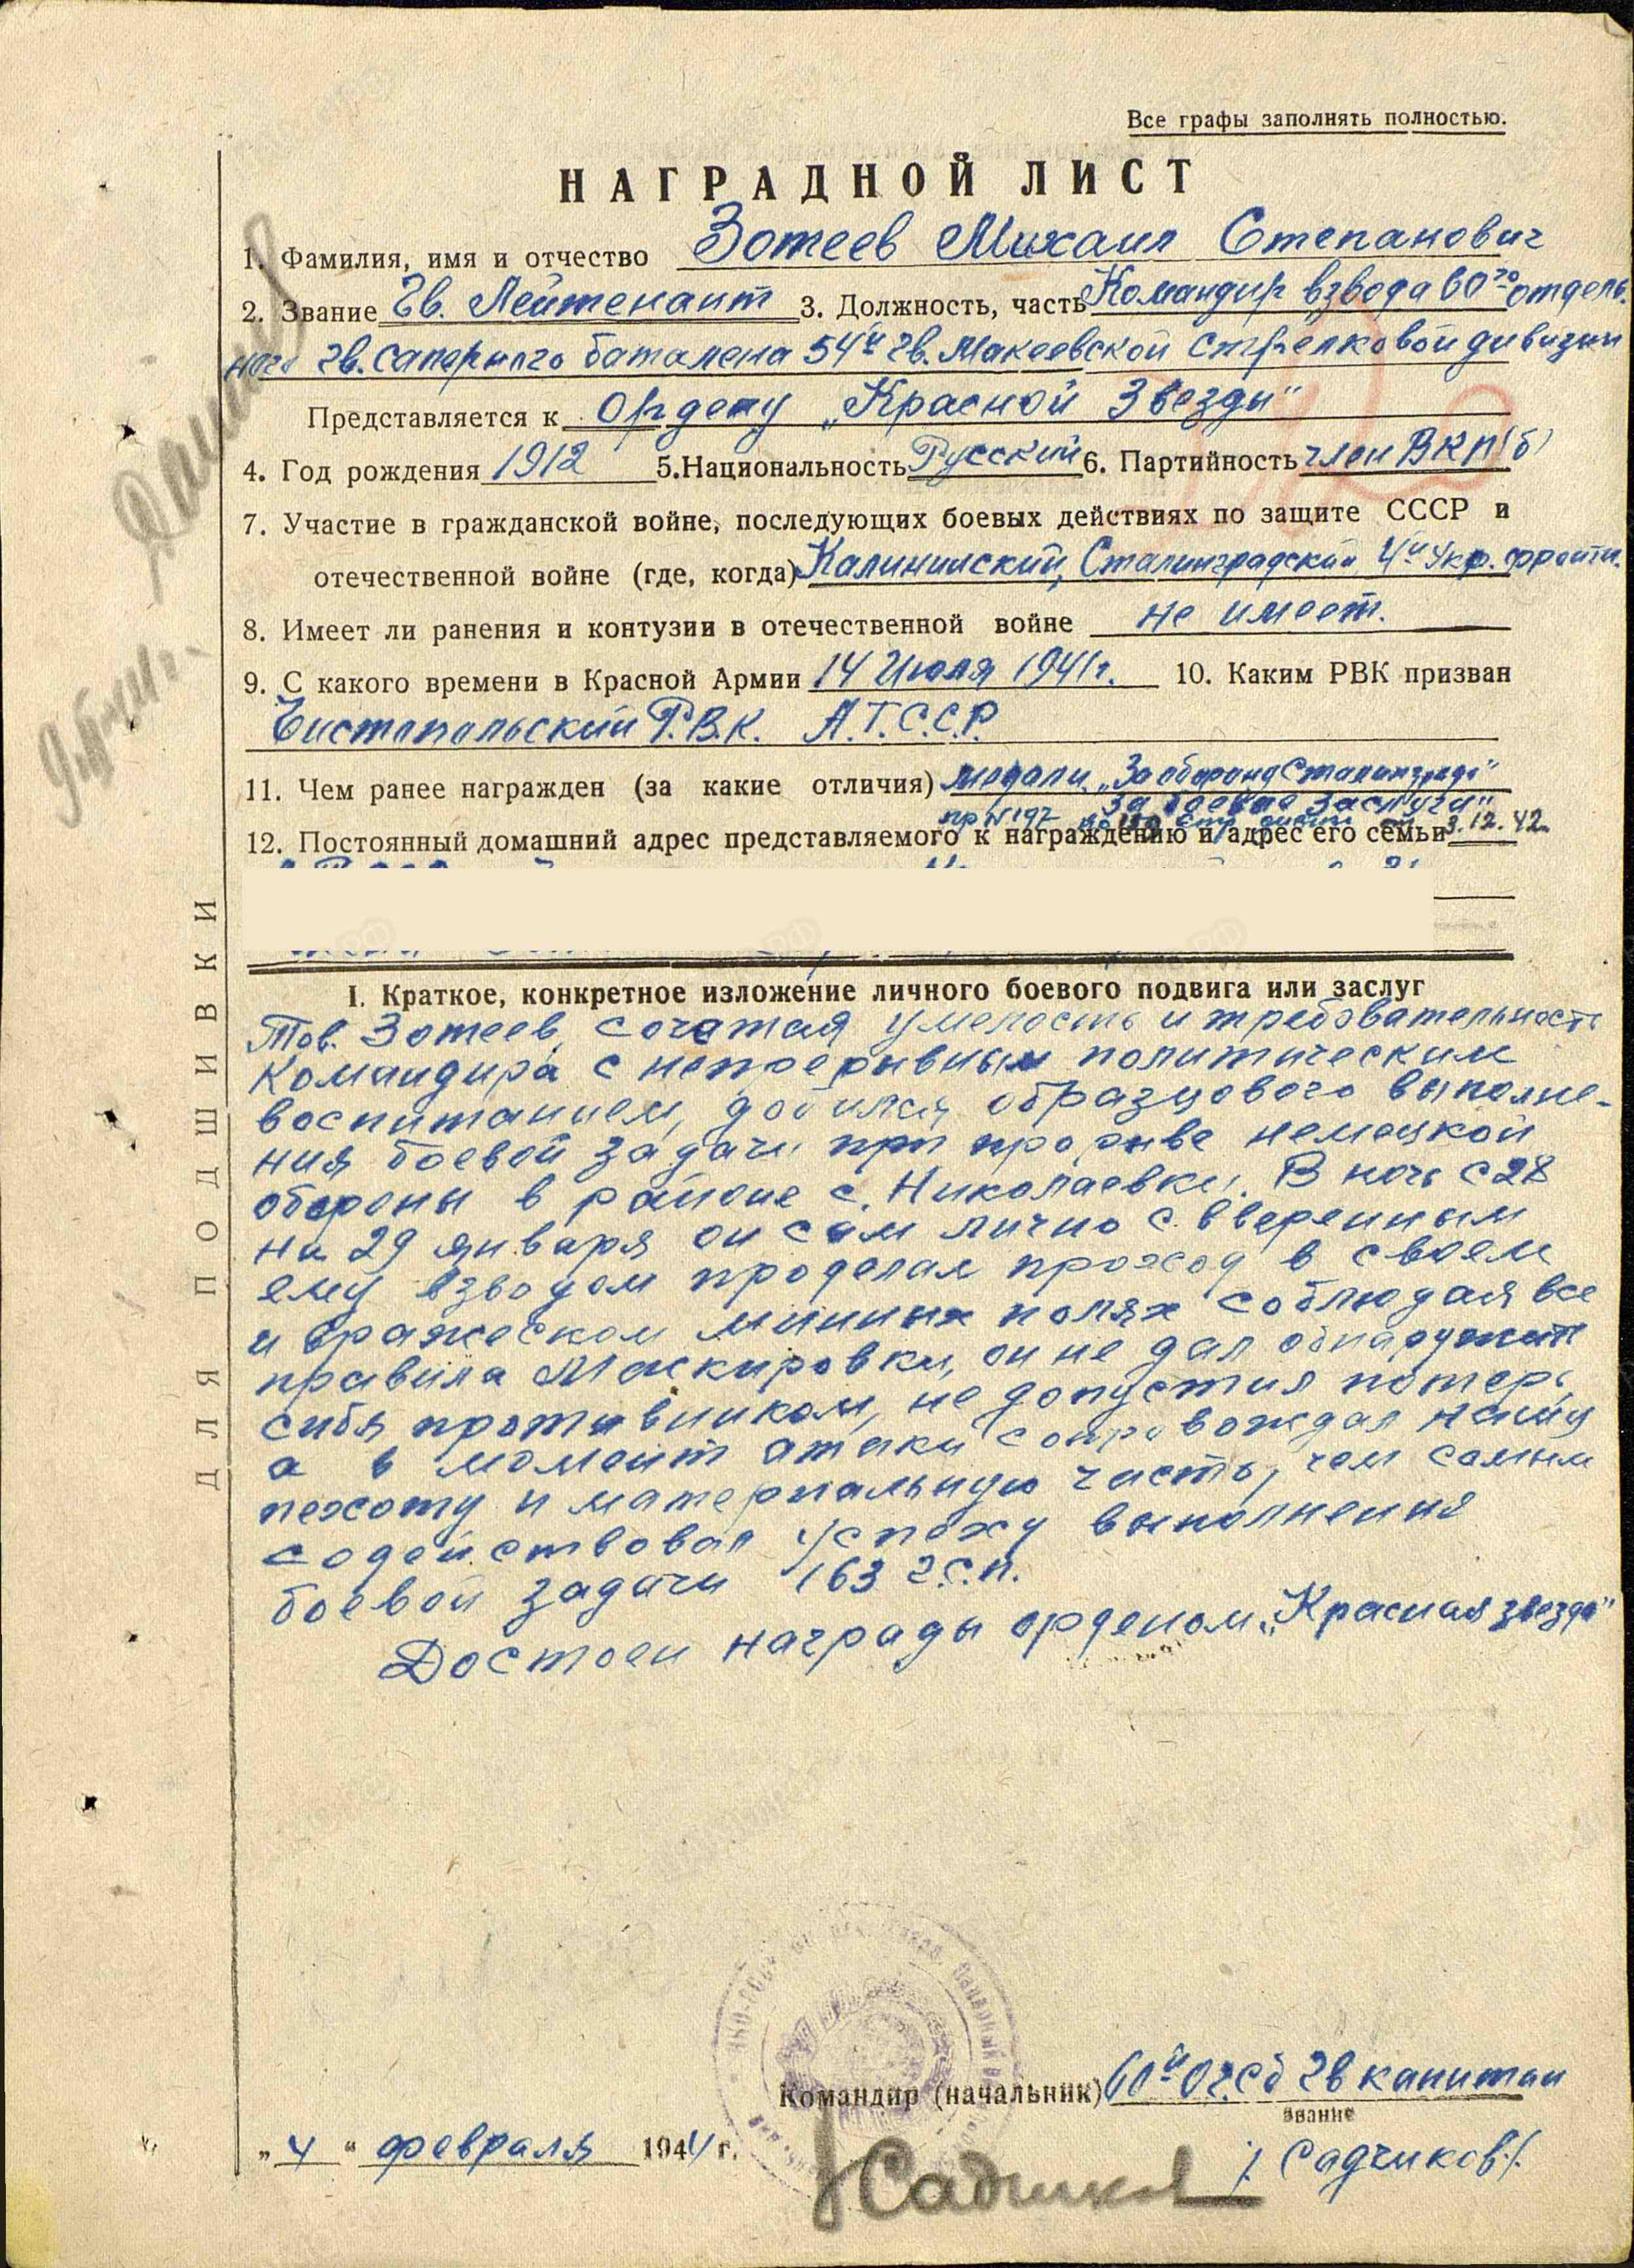 Все графы заполнять полностью.
НАГРАДНОЙ ЛИСТ
1. Фамилия, имя и отчество Зотеев Михаил Степанович
2. Звание Гв. Лейтенант 3. Должность, часть Командир взвода 60го отдель
ного гв. саперного баталена 54й гв. Макеевской Стрелковой дивизии
Представляется к Ордену „Красной Звезды"
4. Год рождения 1912 5. Национальность Русский 6. Партийность член ВКП(б)
7. Участие в гражданской войне, последующих боевых действиях по защите СССР и
отечественной войне (где, когда) Калининский, Сталинградский 4й Укр. фронты.
8. Имеет ли ранения и контузии в отечественной войне не имеет.
9. С какого времени в Красной Армии 14 Июля 1941г. 10. Каким РВК призван
Чистопольский Р.В.К. А.Т.С.С.Р.
11. Чем ранее награжден (за какие отличия) медали „За оборону Сталинграда"
„За боевые заслуги"
пр №197 по 150 стр. дивизии от 3.12.42
12. Постоянный домашний адрес представляемого к награждению и адрес его семьи
I. Краткое, конкретное изложение личного боевого подвига или заслуг
Тов. Зотеев, сочетая умелость и требовательность
командира с непрерывным политическим
воспитанием, добился образцового выполне-
ния боевой задачи при прорыве немецкой
обороны в районе с. Николаевки. В ночь с 28
на 29 января он сам лично с вверенным
ему взводом проделал проход в своем
и вражеском минных полях соблюдая все
правила Маскировки, он не дал обнаружить
себя противником, не допустил потерь,
а в момент атаки сопровождал нашу
пехоту и материальную часть, чем самым
содействовал успеху выполнения
боевой задачи 163 г.с.п.
Достоен награды орденом „Красная звезда"
ДЛЯ ПОДШИВКИ
Командир (начальник) 60й ОГ.сб гв капитан
звание
„4" февраля 1944 г.
/Садчиков/
Садчиков